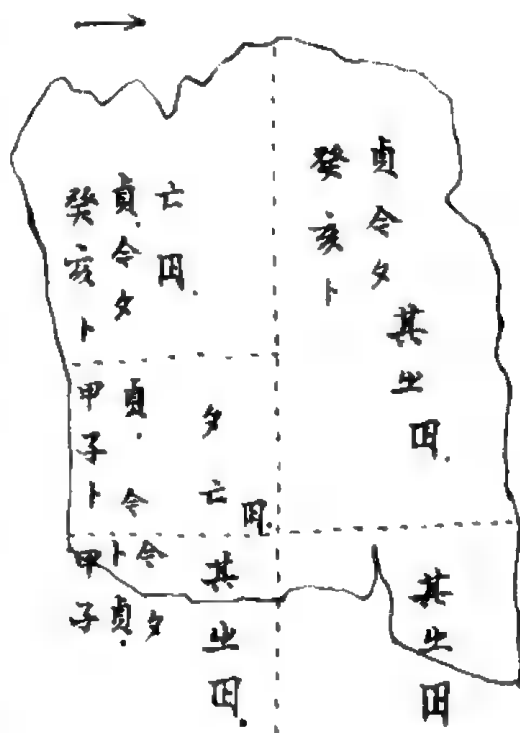 癸亥卜
貞.今夕
亡𡆥.
癸亥卜
貞今夕
其㞢𡆥.
甲子卜
貞.今
夕亡
𡆥.
甲子
卜貞.
今夕
其㞢𡆥.
其㞢𡆥